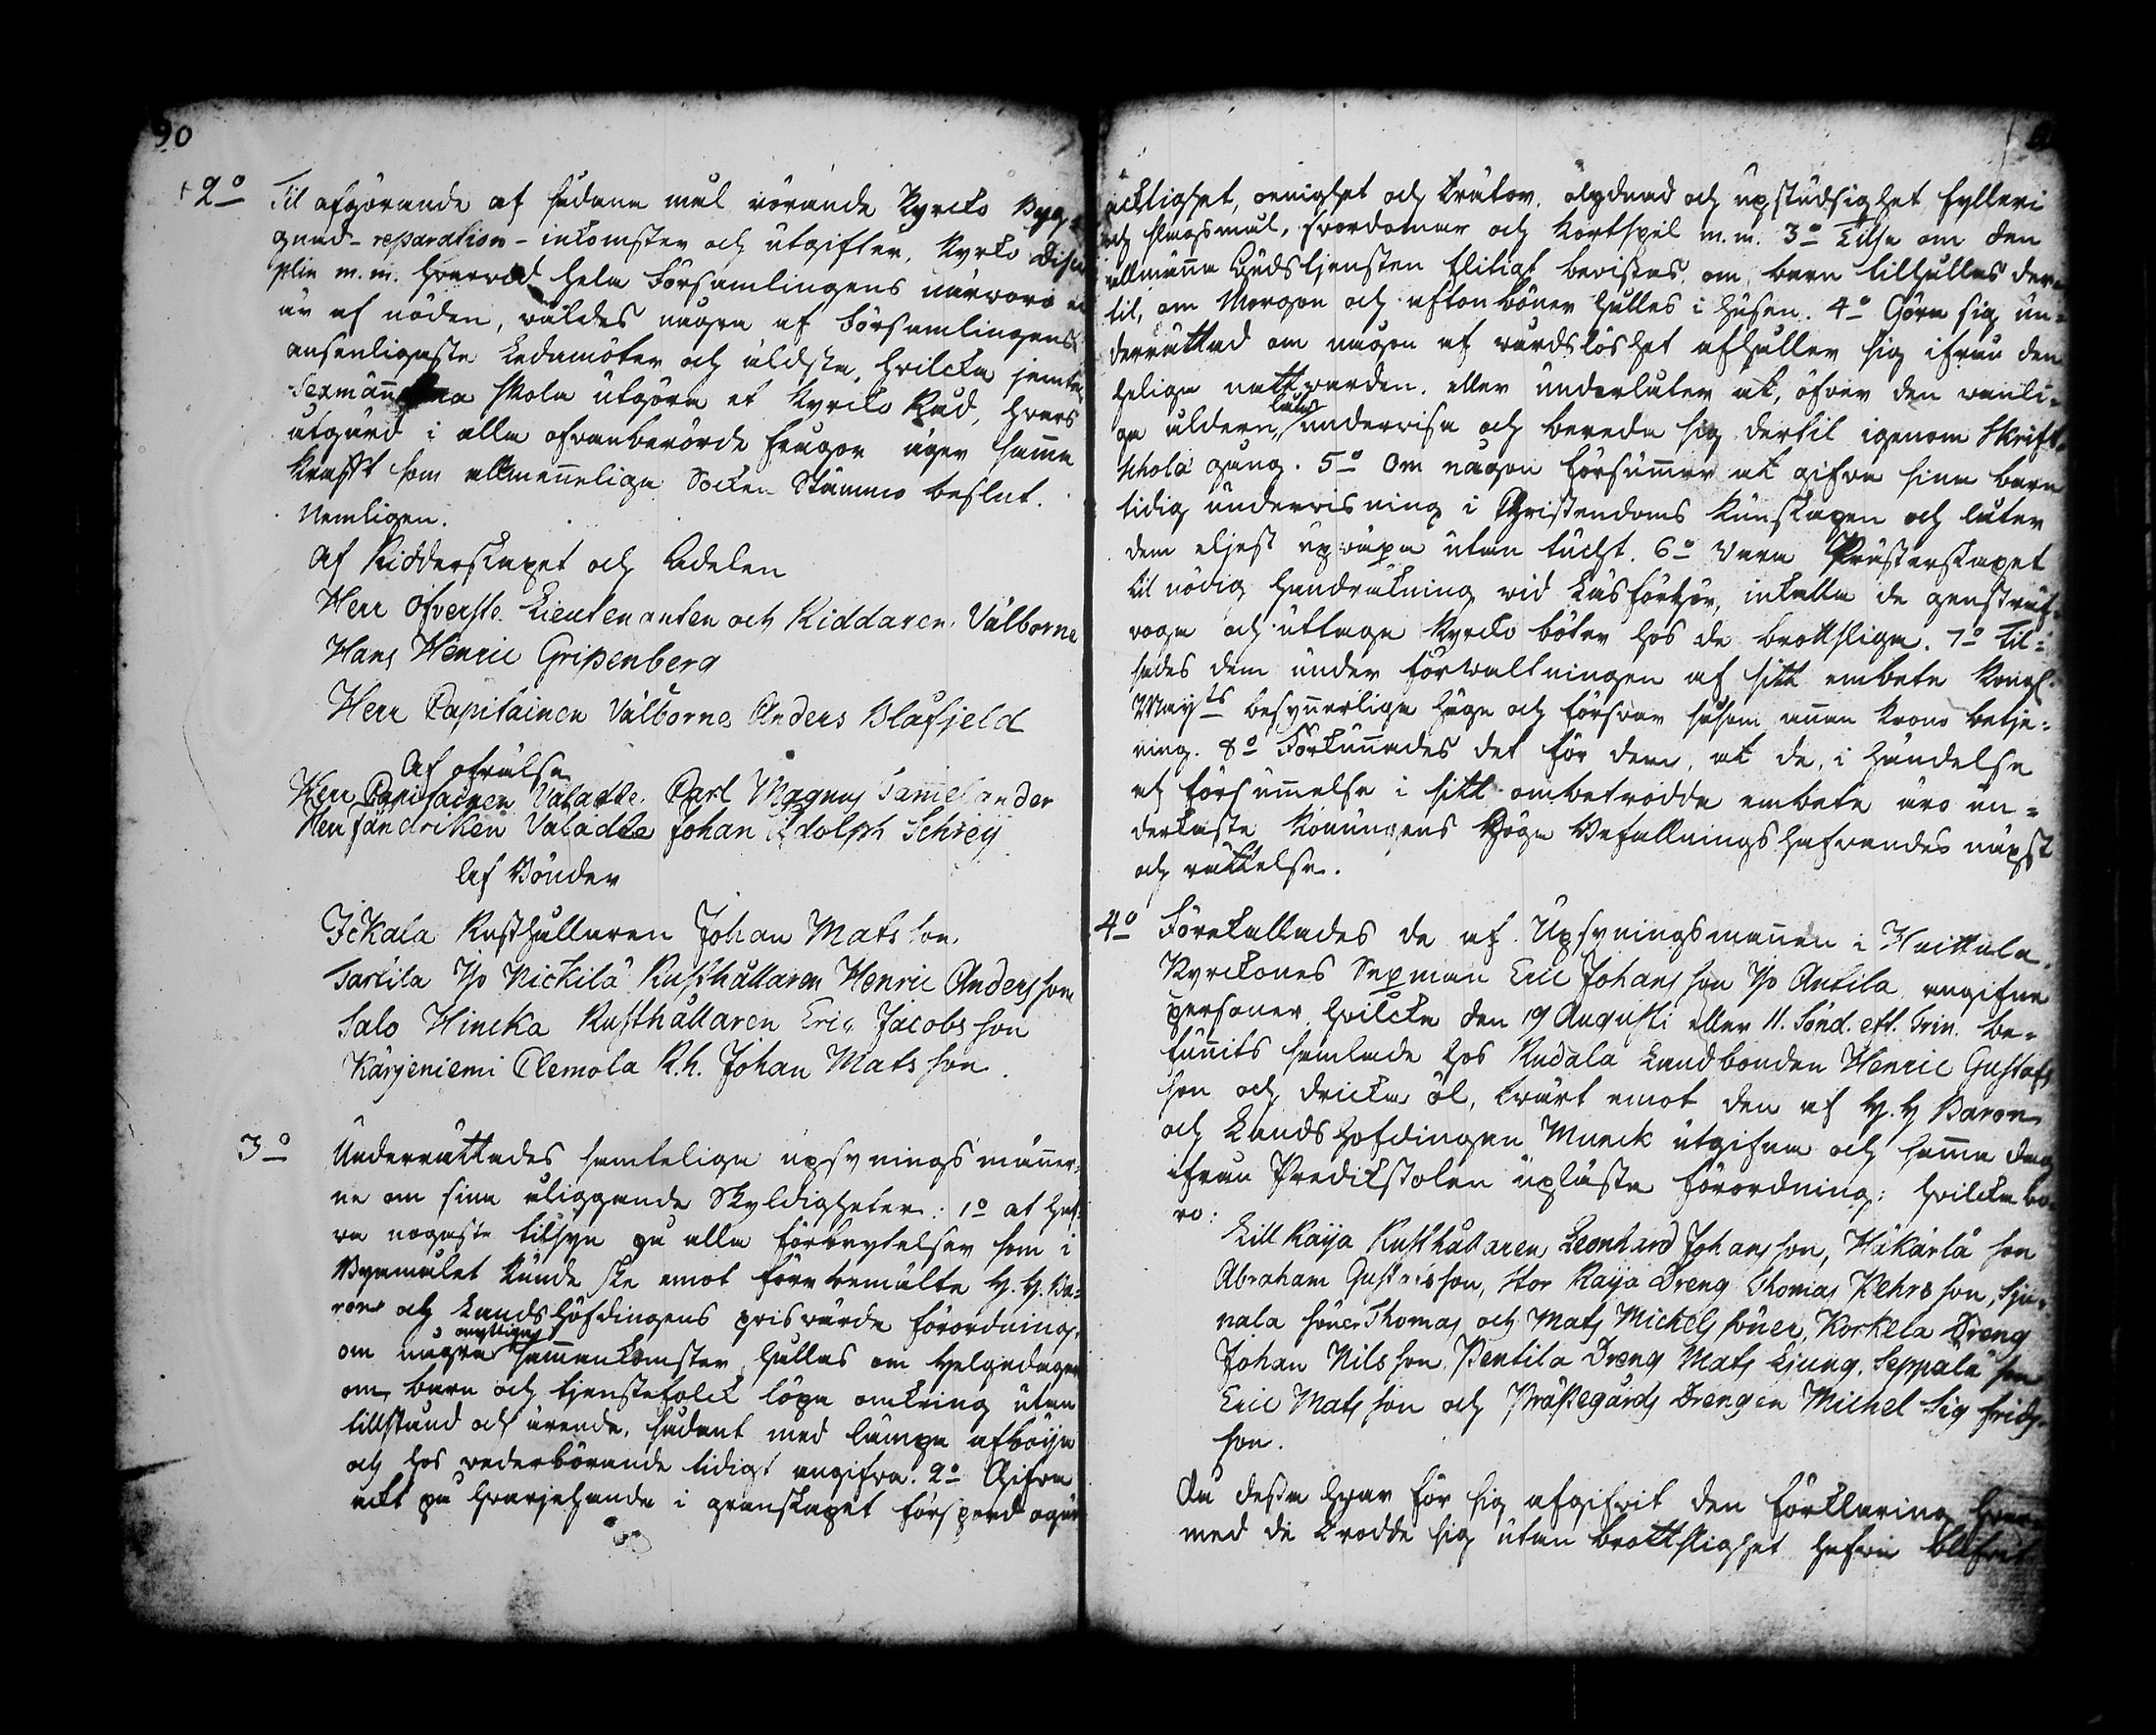 90
2o Til afgörande af sådane mål rörande Kyrcko Byg=
gnad - reparation - inkomster och utgifter, Kyrko Disci
plin m.m. hvarvid hela Församlingens närvaro ei
är af nöden, valdes någre af Församlingens
ansenligaste Ledamöter och äldsta, hvilcka jemte
Sexmännerna skola utgöra et Kyrcko Råd, hvars
åtgärd i alla ofvanberörde frågor äger samma
krafft som allmennelige Socken Stämmo beslut.
Nemligen.
Af Ridderskapet och Adelen
Herr Öfverste Lieutenanten och Riddaren Välborne
Hans Henric Gripenberg
Herr Capitainen Välborne Anders Blåfjeld
Af ofrälse
Herr Capitainen Väladle Carl Magnus Tamelander
Herr Fändriken Väladle Johan Adolph Schreij
Af Bönder
Ickala Rusthållaren Johan Matsson.
Tartila Yso Nickilä Rusthållaren Henric Andersson
Salo Hincka Rusthållaren Eric Jacobsson
Kärjeniemi Clemola R.h. Johan Matsson.
3o Underrättades samtelige upsyningsmänner=
ne om sina åliggande Skyldigheter: 1o at haf=
va nogaste tilsyn på alla förbrytelser som i
Byamålet kunde ske emot förrbemälte H. H. Ba=
rons och Landshöfdingens prisvärde förordning,
om några onyttiga sammankomster hålles om Helgedagen
om barn och tjenstefolck löpa omkring utan
tillstånd och ärende, sådant med lämpa afböija
och hos vederbörande tidigt angifva. 2o Gifva
ackt på hvarjehanda i granskapet försperd ogud
acktighet, oenighet och trätor, olydnad och upstudsighet fylleri
och slagsmål, svordomar och kortspel m.m. 3o Tilse om den
allmänna Gudstjensten flitigt bevistas, om barn tilhålles der=
til, om Morgon och aftonböner hålles i husen. 4o Göra sig un=
derrättad om någon af vårdslöshet afhåller sig ifrån den
heliga nattvarden, eller underlåter at, öfver den vanli=
ga åldern, låta undervisa och bereda sig dertil igenom Skrift=
schola gång. 5o Om någon försummar at gifva sina barn
tidig undervisning i Christendoms kunskapen och låter
dem eljest upväxa utan tucht. 6o Vara Prästerskapet
til nödig handräkning vid Läsförhör, inkalla de genstraf=
voga och uttaga Kyrcko böter hos de brottsliga. 7o Til=
sades dem under förvaltningen af sitt embete Kongl.
Mayts besynnerliga hägn och försvar såsom annan Krono betje=
ning. 8o Förkunnades det för dem, at de, i händelse
af försummelse i sitt ombetrodde embete äro un=
derkaste Konungens Höga Befallningshafvandes näpst
och rättelse.
4o Förekallades de af Upsyningsmannen i Huittula
Kyrckones Sexman Eric Johansson Yso Antila angifne
personer hvilcka den 19 Augusti eller 11. Sönd. eft. Trin. be=
funnits samlade hos Rudala Landbonden Henric Gustafs
son och dricka öl, tvärt emot den af H. H Baron
och Landshöfdingen Munck utgifna och samma dag
ifrån Predikstolen upläste förordning: hvilcka vo
ro:
Lill Raija Rusthållaren Leonhard Johansson, Häkärlä son
Abraham Gustafsson, Stor Raija Dreng Thomas Pehrsson, Sju=
vala söner Thomas och Mats Michelssöner, Korkela Dreng
Johan Nilsson, Pentila Dreng Mats Ljung, Seppälä son
Eric Matsson och Prästegårds Drengen Michel Sigfrids=
son.
Då dessa hvar för sig afgifvit den förklaring hvar
med de trodde sig utan brottslighet hafva blifvit